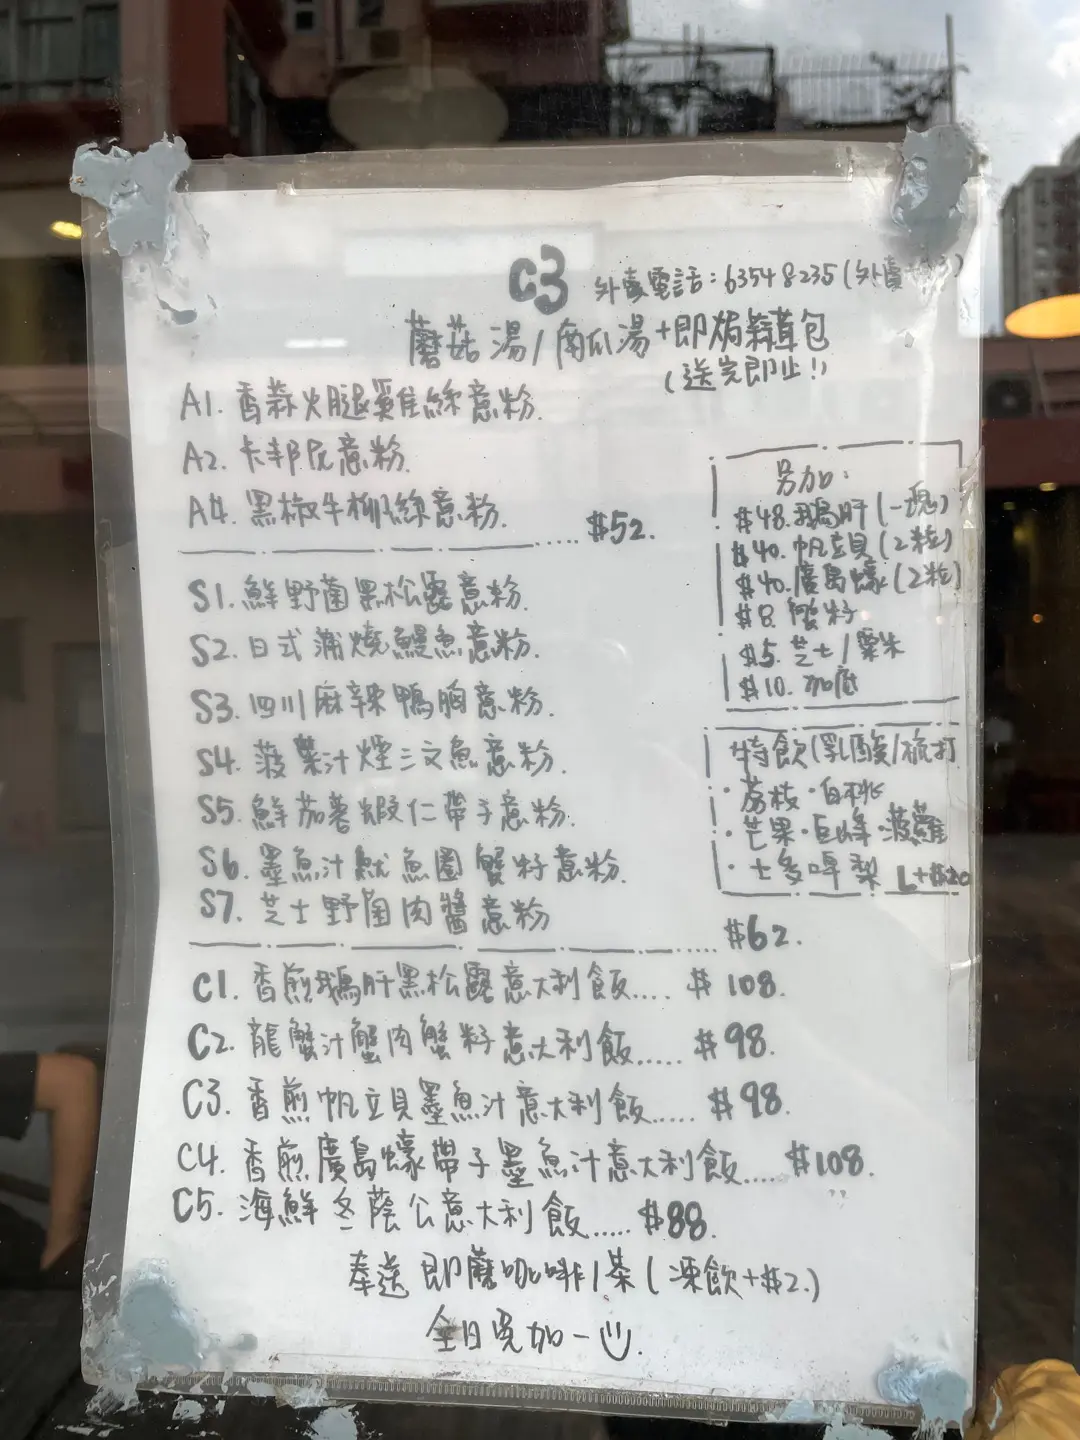 C3 外賣電話:63548235(外賣
蘑菇湯/南瓜湯+即焗蒜茸包
(送完即止!)
A1. 香蒜火腿雞絲意粉.
A2. 卡邦尼意粉.
A4. 黑椒牛柳絲意粉. ..... $52.
S1. 鮮野菌黑松露意粉.
S2. 日式蒲燒鰻魚意粉.
S3. 四川麻辣鴨胸意粉.
S4. 菠菜汁煙三文魚意粉.
S5. 鮮茄蓉蝦仁帶子意粉.
S6. 墨魚汁魷魚圈蟹籽意粉.
S7. 芝士野菌肉醬意粉
..... $62.
另加:
$48. 鵝肝(一塊)
$40. 帆立貝(2粒)
$40. 廣島蠔(2粒)
$8. 蟹籽
$5. 芝士/粟米
$10. 加底
特飲(乳酸/梳打
·荔枝·白桃
·芒果·巨峰·菠蘿
·士多啤梨 L+$20
C1. 香煎鵝肝黑松露意大利飯.... $108.
C2. 龍蟹汁蟹肉蟹籽意大利飯..... $98.
C3. 香煎帆立貝墨魚汁意大利飯..... $98.
C4. 香煎廣島蠔帶子墨魚汁意大利飯..... $108.
C5. 海鮮冬蔭公意大利飯..... $88.
奉送即磨咖啡/茶(凍飲+$2.)
全日免加一